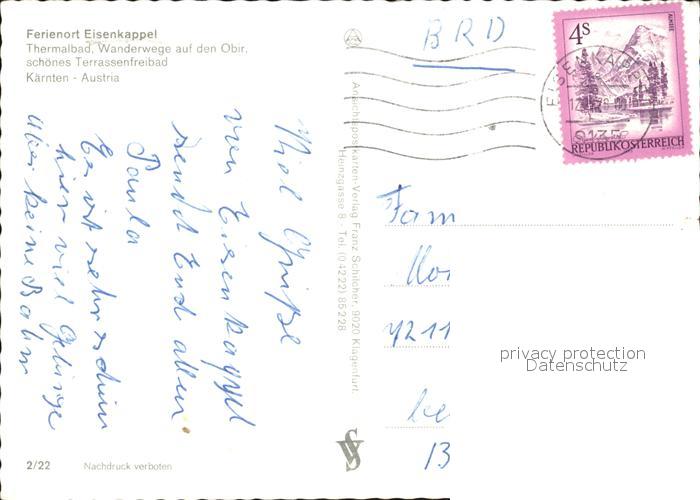 Ferienort Eisenkappel
Thermalbad, Wanderwege auf den Obir,
schönes Terrassenfreibad
Kärnten - Austria
Viel Grüße
von Eisenkappel
sendet Euch allen
Paula
Es ist sehr schön
hier viel Gebirge
aber keine Bahn
2/22 Nachdruck verboten
Ansichtspostkarten-Verlag Franz Schilcher, 9020 Klagenfurt,
Heinzgasse 8 - Tel. (04222) 85228
BRD
4s
ALMSEE
REPUBLIK ÖSTERREICH
9135
Fam
7211
13
privacy protection
Datenschutz